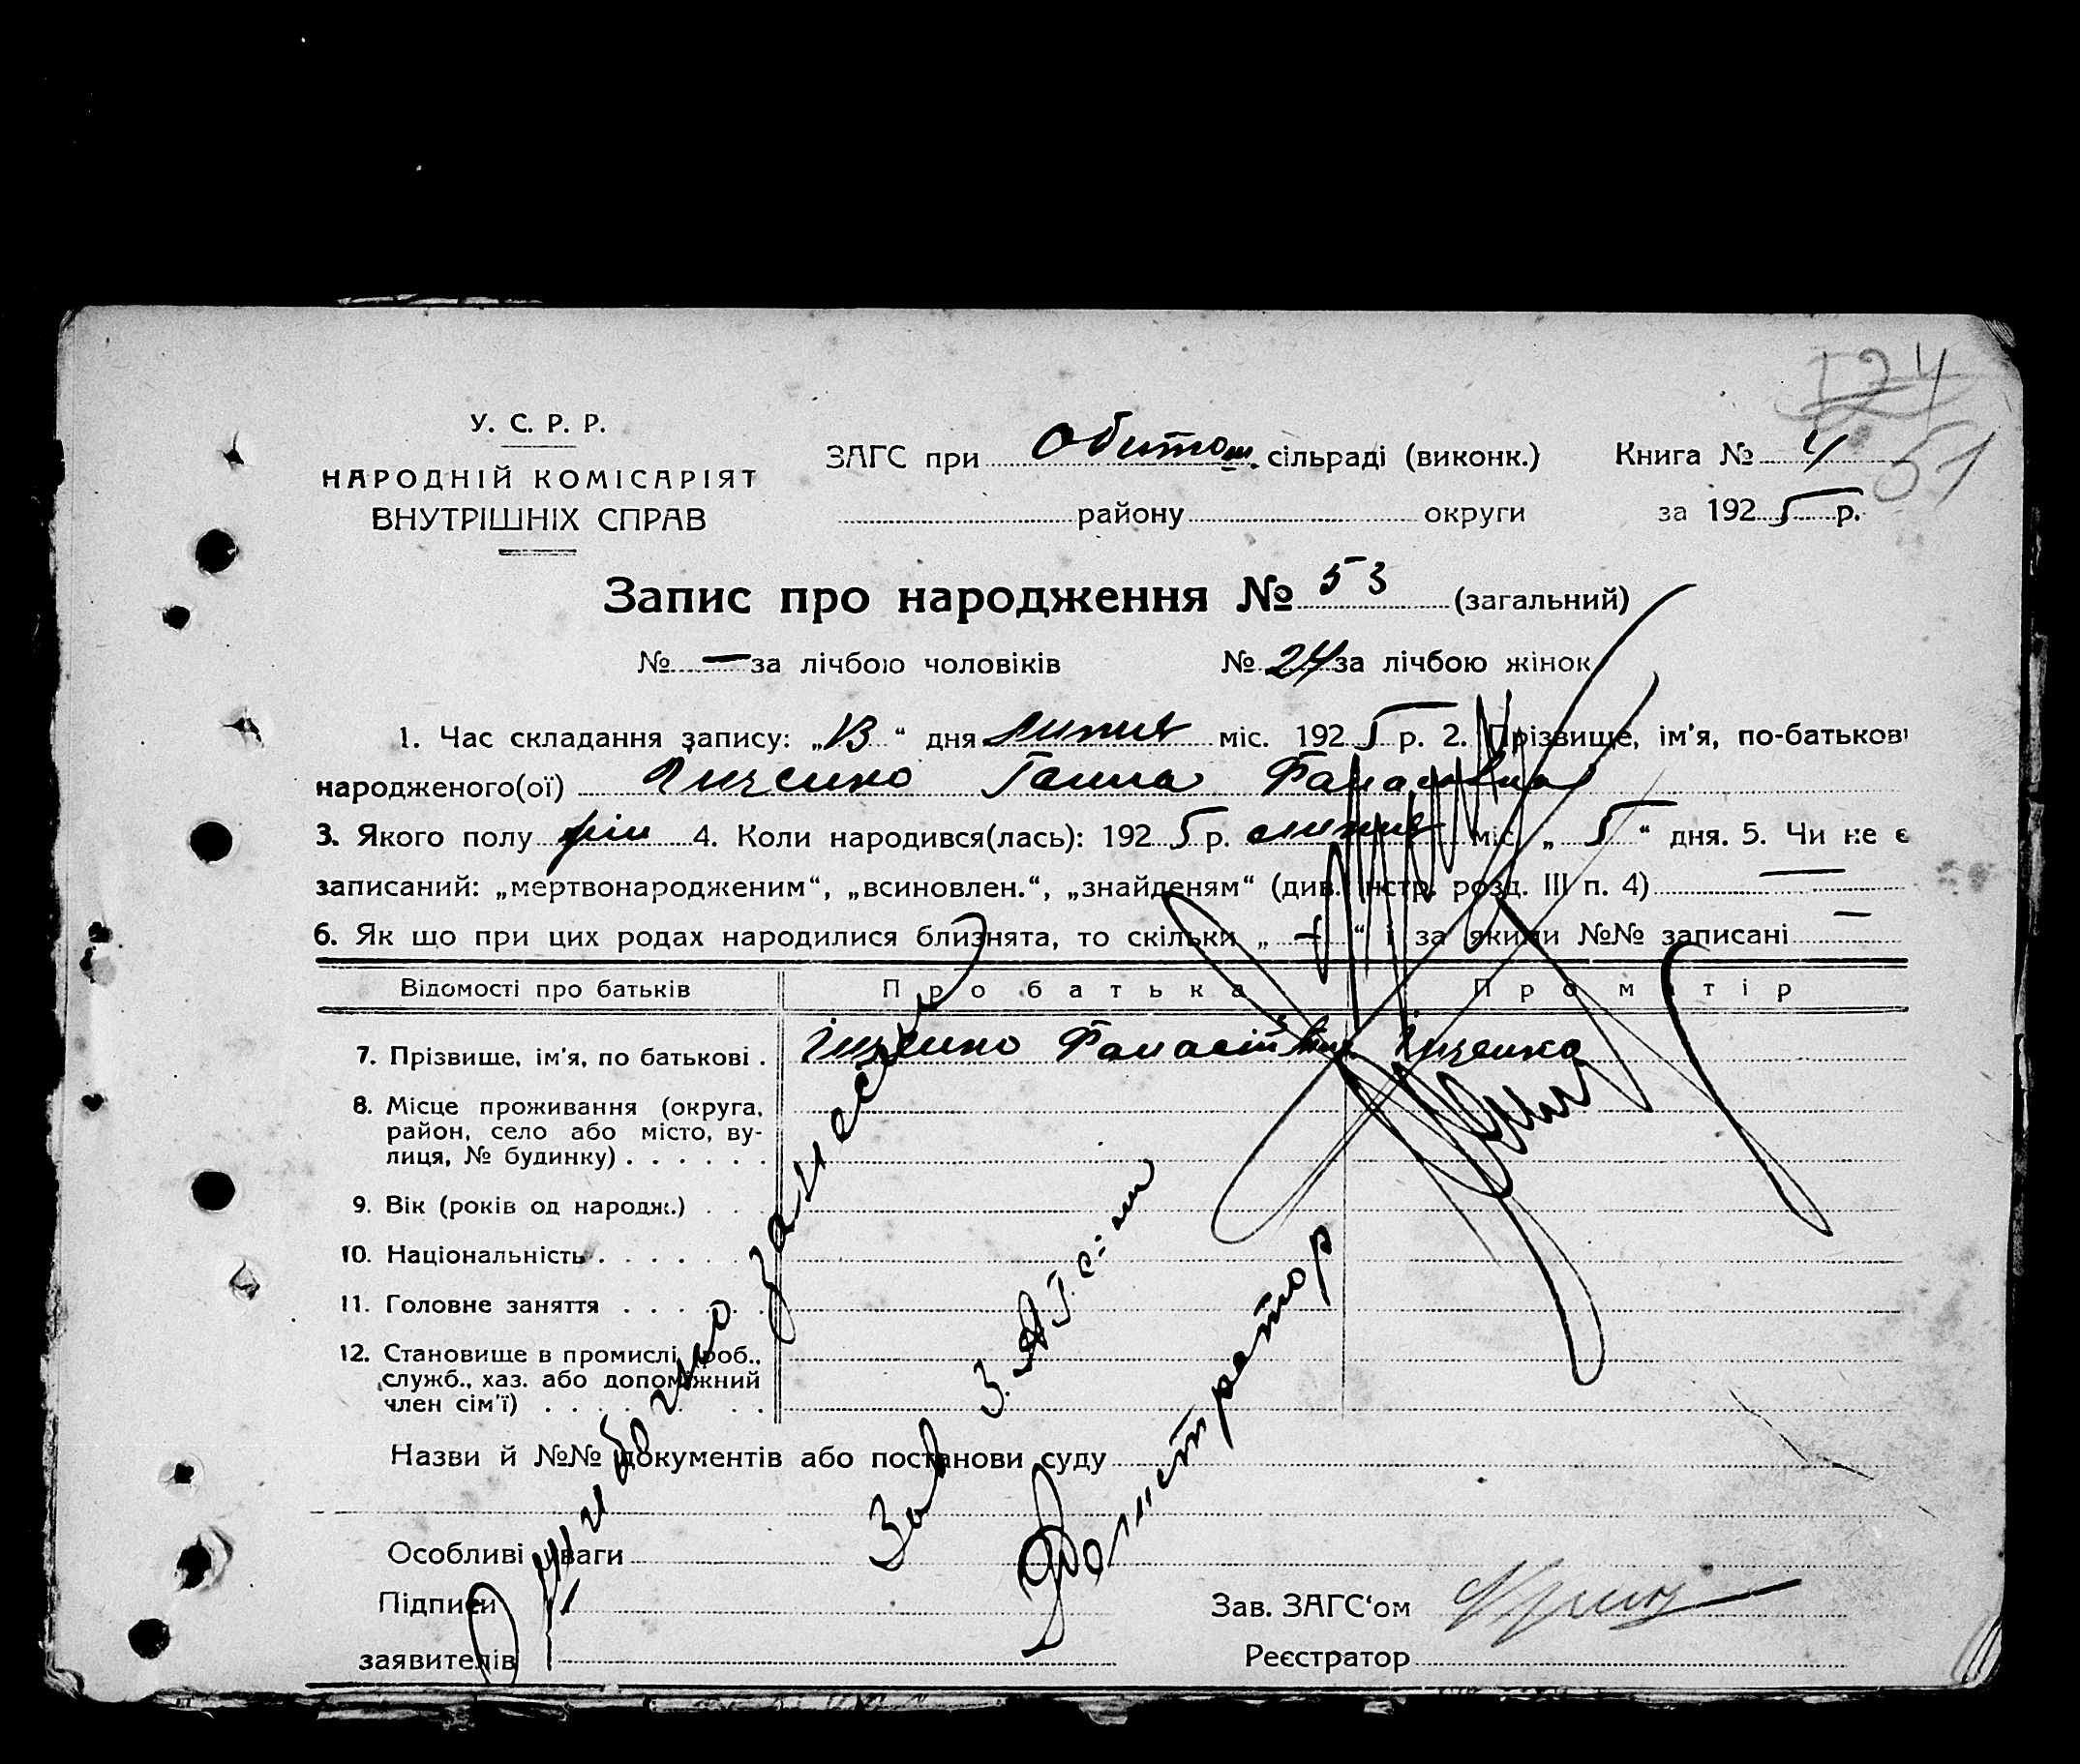 124
51
У. С. Р. Р.
НАРОДНІЙ КОМІСАРІЯТ
ВНУТРІШНІХ СПРАВ
ЗАГС при Обитош. сільраді (виконк.) Книга № 4
району округи за 1925 р.
Запис про народження № 53 (загальний)
№ — за лічбою чоловіків № 24 за лічбою жінок
1. Час складання запису: „13“ дня липня міс. 1925 р. 2. Прізвище, ім'я, по-батькові
народженого(ої) Іщенко Ганна Панасовна
3. Якого полу жін 4. Коли народився(лась): 1925 р. липня міс. „5“ дня. 5. Чи не є
записаний: „мертвонародженим“, „всиновлен.“, „знайденям“ (див. інстр. розд. III п. 4) —
6. Як що при цих родах народилися близнята, то скільки „—“ і за якими №№ записані —
Відомості про батьків Про батька Про матір
7. Прізвище, ім'я, по батькові . Іщенко Панас Іщенко
8. Місце проживання (округа,
район, село або місто, ву-
лиця, № будинку) . . . . . .
9. Вік (років од народж.) . . .
10. Національність . . . . . .
11. Головне заняття . . . . .
12. Становище в промислі, (роб.,
служб., хаз. або допоміжний
член сім'ї) . . . . . . . .
Назви й №№ документів або постанови суду
Особливі уваги
Підписи Зав. ЗАГС'ом
заявителів Реєстратор
Зав З.АГС-ом